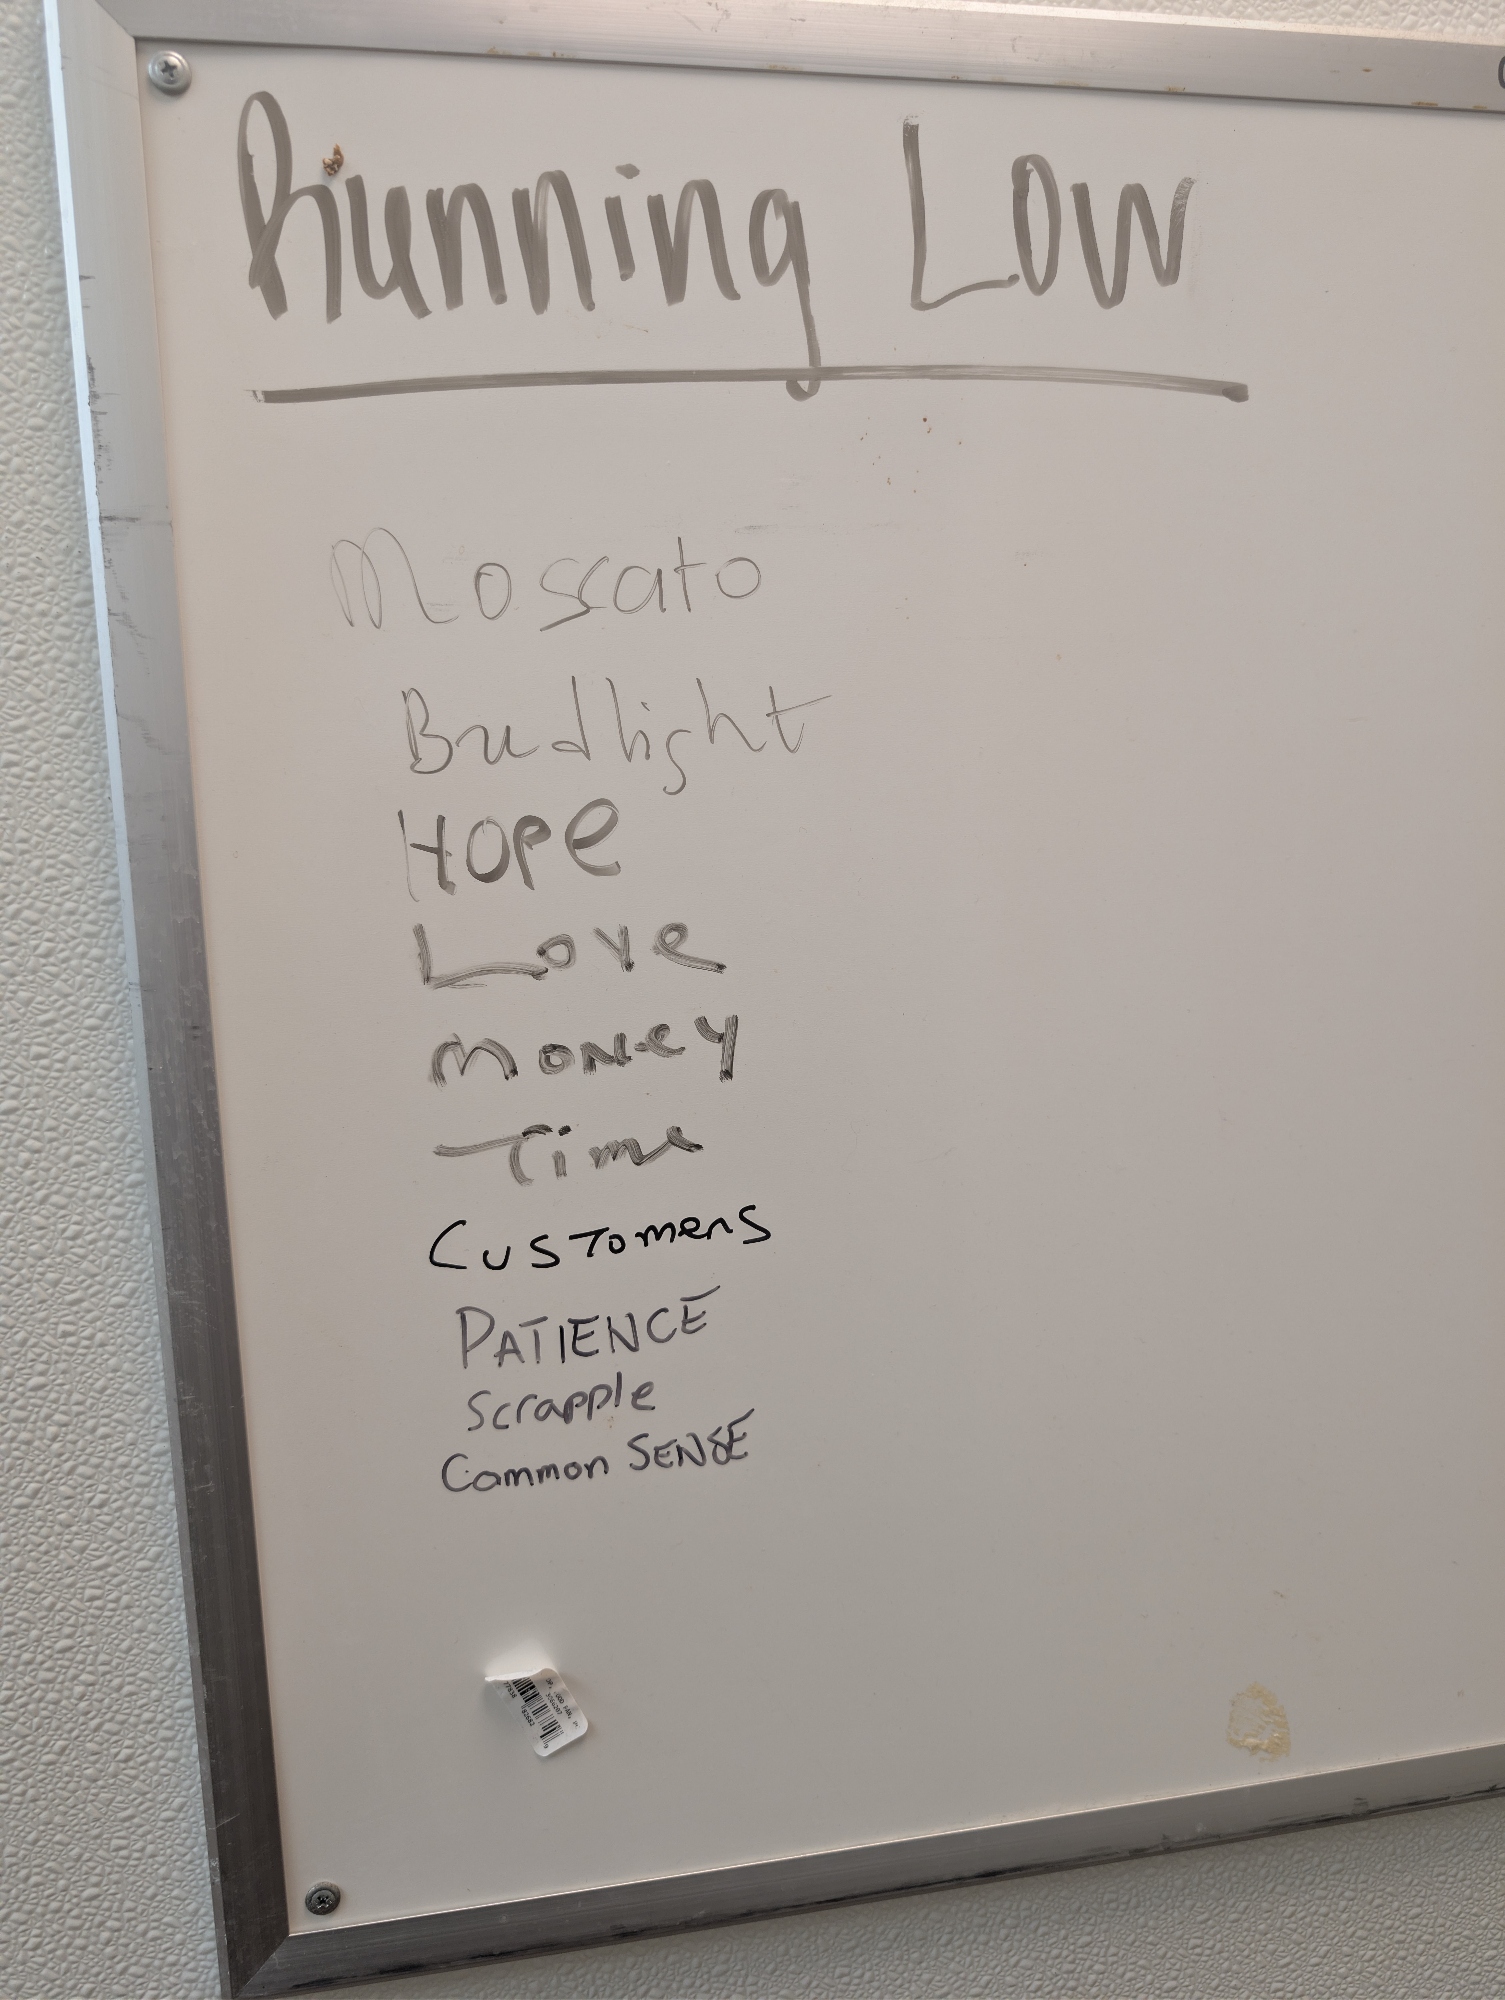 Running Low
Moscato
Budlight
HOPE
Love
Money
Time
Customers
PATIENCE
Scrapple
Common SENSE